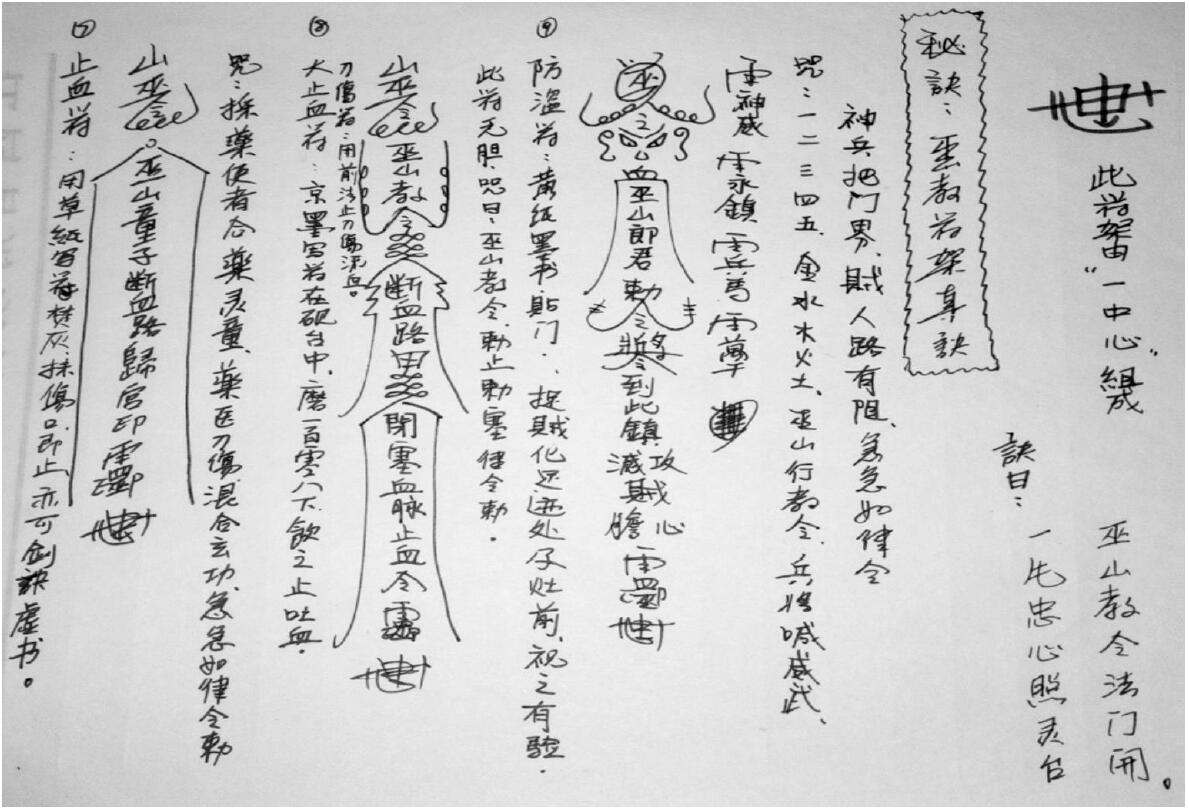 此符窨“一中心”組成
訣曰：
一片忠心照灵台
巫山教令法门開。
秘訣：巫教符架真訣
神兵把门界、賊人路有阻、急急如律令
咒：一二三四五、金水木火土、巫山行教令、兵将喊威武、
巫之
血巫山郎君勅令
到此鎮
攻賊心
滅賊膽
⑨
防盜符：黄紙墨书貼门、捉賊化
灶前、祝之有验.
此符无胆、咒曰：巫山教令、勅止勅塞律令勅.
山巫令
巫山教令
断血路
閉塞血脉止血令
⑧
刀傷符：用前法止刀傷流血。
大止血符：京墨写符在砚台中、磨一百零八下、飲之止吐血.
咒：採藥使者合藥灵童、藥医刀傷、混合玄功、急急如律令勅
山巫令
巫山童子断血路歸宫印
⑦
止血符：用草紙写符焚灰、抹傷口即止、亦可剑訣虚书。